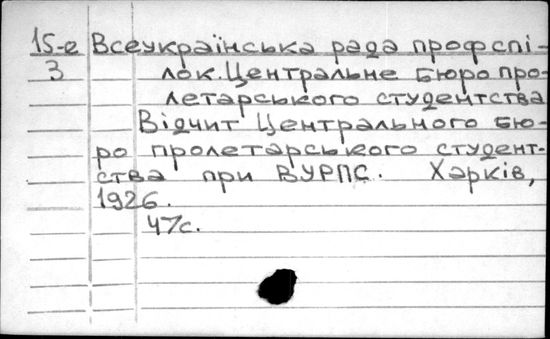 15-е Всеукраїнська рада профспі-
3 лок. Центральне Бюро про-
летарського студентства
Відчит Центрального Бю-
ро пролетарського студент-
ства при ВУРПС. Харків,
1926.
47с.